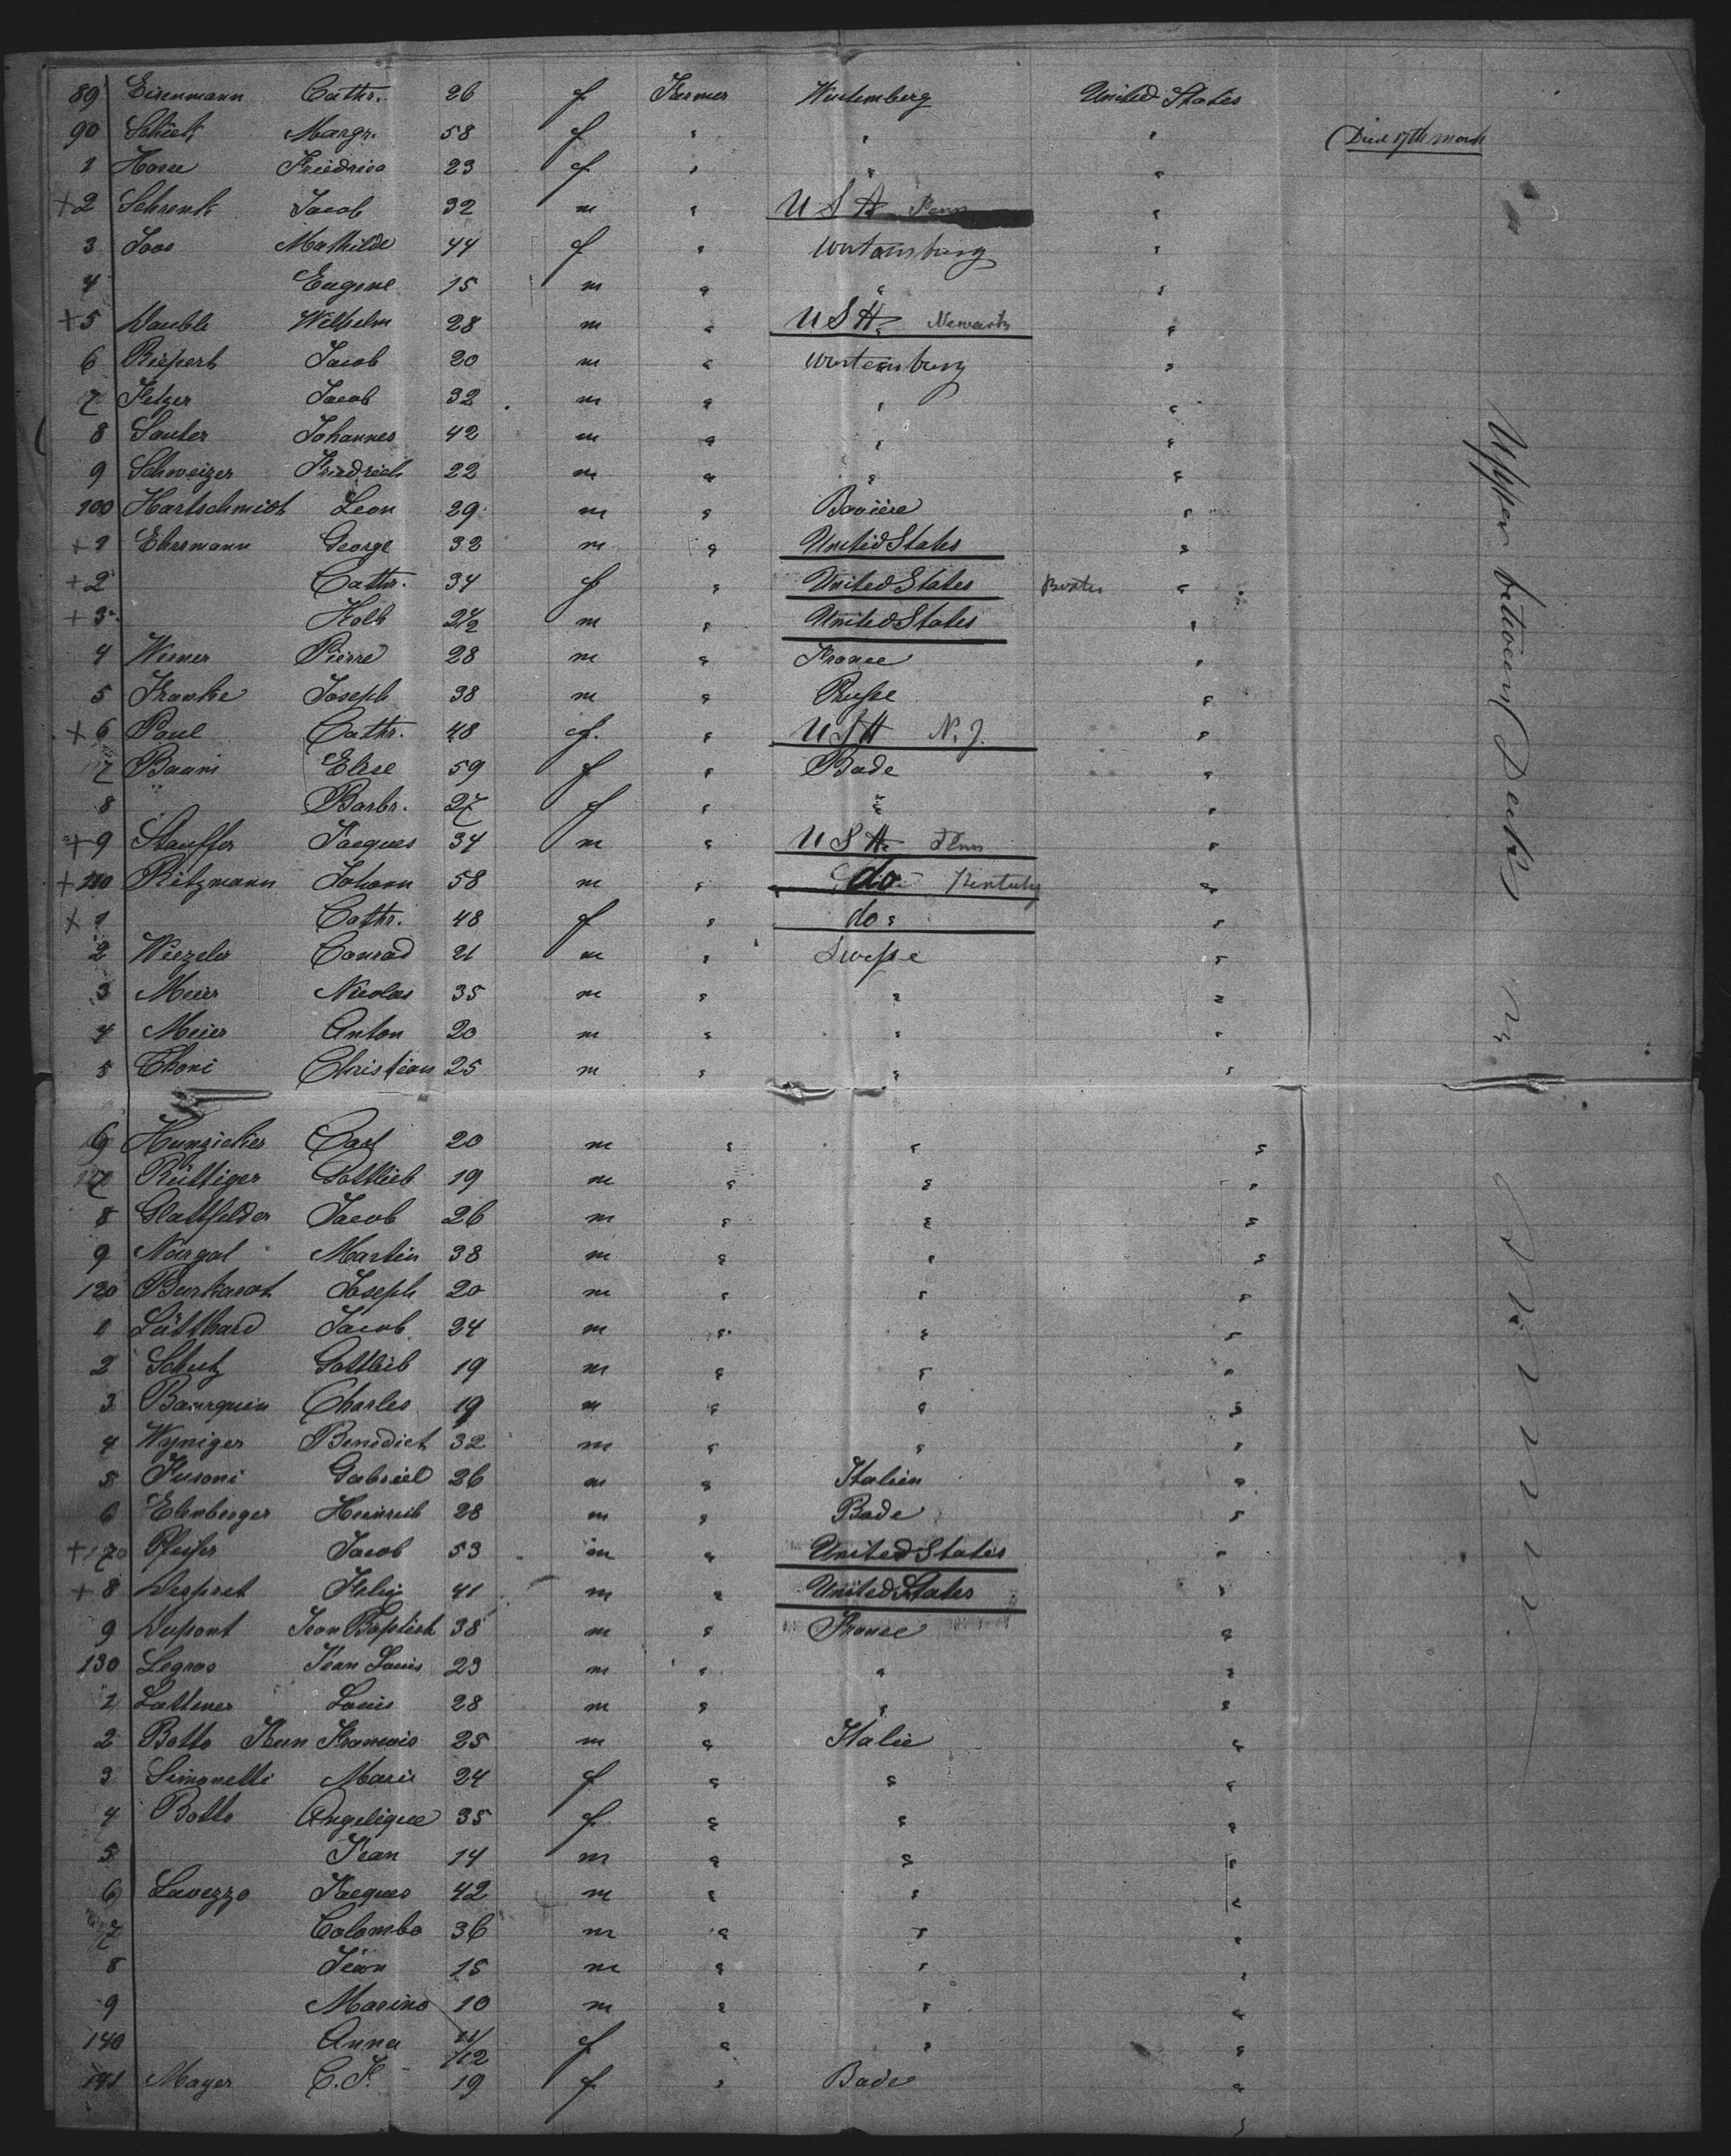 89 Eisenmann Cathr. 26 f Farmer Wurtemberg United States
90 Margr. 58 f " " " Died 17th March
1 Friedrica 23 f " " "
+2 Schrenk Jacob 32 m " U S A Penn "
3 Joos Mathilde 44 f " Wurtemburg "
4 Eugene 15 m " " "
+5 Wilhelm 28 m " U S A Newark "
6 Jacob 20 m " Wurtemburg "
7 Fetzer Jacob 32 m " " "
8 Sauter Johannes 42 m " " "
9 Schweizer Friedrich 22 m " " "
100 Hartschmidt Leon 29 m " Bavière "
+1 Ehrsmann George 32 m " United States "
+2 Cathr. 34 f " United States "
+3 Kolb 2 1/2 m " United States "
4 Werner Pierre 28 m " France "
5 Franke Joseph 38 m " "
+6 Paul Cathr. 48 f. " U S A N. J. "
7 Baum Elise 59 f " Bade "
8 Barbr. 27 f " " "
+9 Stauffer Jacques 34 m " U S A Penn "
+110 Ritzmann Johann 58 m " do Kentucky "
+1 Cathr. 48 f " do "
2 Conrad 21 m " Suisse "
3 Meier Nicolas 35 m " " "
4 Meier Anton 20 m " " "
5 Thoni Christian 25 m " " "
6 Hunzicker Carl 20 m " " "
7 Rüttiger Gottlieb 19 m " " "
8 Glattfelder Jacob 26 m " " "
9 Martin 38 m " " "
120 Burkardt Joseph 20 m " " "
1 Lütthard Jacob 24 m " " "
2 Schutz Gottlieb 19 m " " "
3 Bourquin Charles 19 m " " "
4 Wyniger Benedict 32 m " " "
5 Fusoni Gabriel 26 m " Italien "
6 Elenberger Heinrich 28 m " Bade "
+7 Pfeifer Jacob 53 m " United States "
+8 Despret Felix 41 m " United States "
9 Dupont Jean Baptist 38 m " France "
130 Legros Jean Louis 23 m " " "
1 Lattener Louis 28 m " " "
2 Botto Jean Francois 25 m " Italie "
3 Simonetti Marie 24 f " " "
4 Botto Angelique 35 f " " "
5 Jean 14 m " " "
6 Lavezzo Jacques 42 m " " "
7 Colombo 36 m " " "
8 Jean 15 m " " "
9 Marino 10 m " " "
140 Anna 11/12 f " " "
141 Mayer C. F. 19 f " Bade "
Upper between Decks